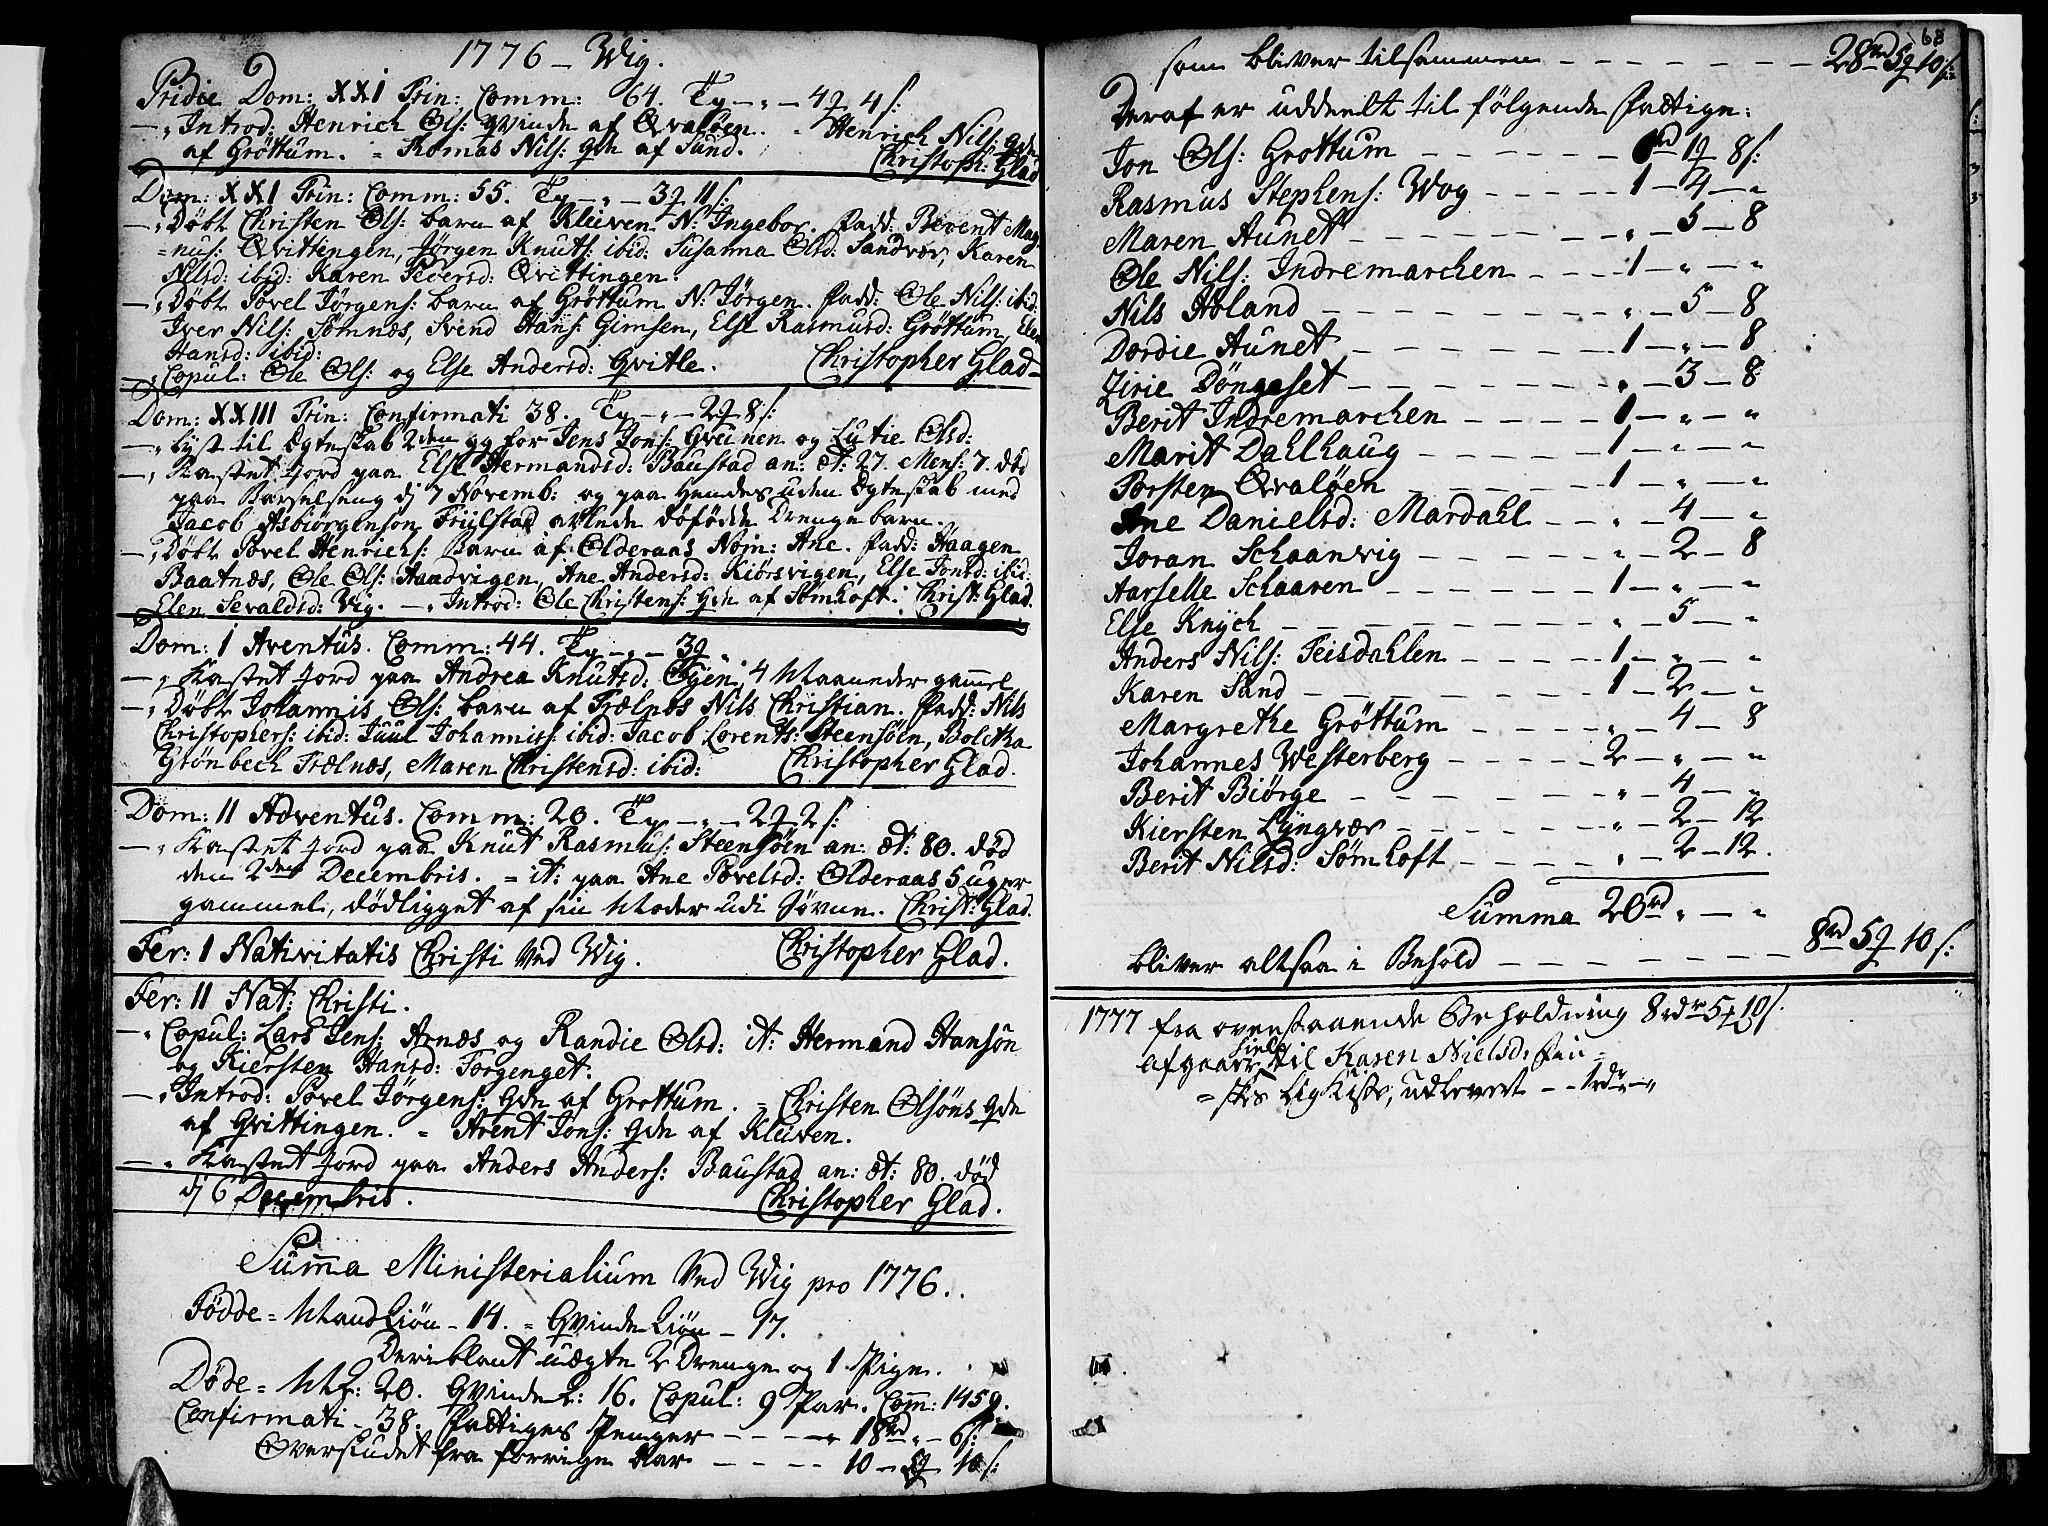 1776 – Wig.
Pridie Dom: XXI Trin: Comm: 64. – " – 4 4 s:
– " Introd: Henrich Ols: Qvinde af Qvaløen. = Henrich Nils: Qde
af Gröttum. = Thomas Nils: Qde af Sund. Christoph: Glad
Dom: XXI Trin: Comm: 55. – " – 3 11 s:
– " Døbt Christen Ols: barn af Kleiven N: Ingebor. Fadd: Bevent Mag
=nus: Qvittingen, Jørgen Knuts: ibid: Susanna Olsd: Sandvær, Karen
Nilsd: ibid: Karen Pedersd: Qvittingen.
– " Døbt Povel Jørgens: barn af Gröttum N: Jörgen. Fadd: Ole Nils: ibid:
Iver Nils: Sömnæs, Svend Hans: Gimsen, Else Rasmusd: Gröttum, Elen
Hansd: ibid:
– " Copul: Ole Ols: og Else Andersd: Qvitle. Christopher Glad –
Dom: XXIII Trin: Confirmati 38. – " – 2 8 s:
– " Lyst til Ægteskab 2den gg for Jens Jons: Qveinen og Lutie Olsd:
– " Kastet Jord paa Else Hermandsd: Baustad an: æt: 27. Mens: 7. død
paa Barselseng dj 7 Novemb: og paa hendes uden Ægteskab med
Jacob Asbiörgensön Früelstad avlede døfødde Drengebarn.
– " Døbt Povel Henrichs: Barn af Olderaas Nom: Ane. Fadd: Haagen
Baatnæs, Ole Ols: Haadvigen, Ane Andersd: Kiörsvigen, Else Jonsd: ibid:
Elen Sevaldsd: Vig. – " Introd: Ole Christens: Qde af Sömhoft. Christ: Glad.
Dom: I Aventus. Comm: 44. – " – 3
– " Kastet Jord paa Andrea Knutsd: Öyen, 4 Maaneder gammel
– " Døbt Johannis Ols: barn af Frælnes Nils Christian. Fadd: Nils
Christophers: ibid: Juul Johannis: ibid: Jacob Lorents: Steensöen, Boletha
Grönbech Frælnæs, Maren Christensd: ibid: Christopher Glad.
Dom: II Adventus. Comm: 20. – " – 2 2 s:
– " Kastet Jord paa Knut Rasmus: Steensöen an: æt: 80. død
den 2den Decembris. = it: paa Ane Povelsd: Olderaas 5 uger
gammel, dödligget af sin Moder udi Søvne. Christ: Glad.
Fer: I Nativitatis Christi ved Wig. Christopher Glad.
Fer: II Nat: Christi.
– " Copul: Lars Jens: Arnæs og Randie Olsd: it: Hermand Hansön
og Kiersten Hansd: Forgenget.
– " Introd: Povel Jörgens: Qde af Grottum. = Christen Olsöns Qde
af Qvittingen. = Arent Jons: Qde af Kleiven.
– " Kastet Jord paa Anders Anders: Baustad an: æt: 80. död
dj 6 Decembris. Christopher Glad.
Summa Ministerialium ved Wig pro 1776.
Fødde = Mandkiön – 14. = Qvindekiön – 17.
Deriblant uægte 2 Drenge og 1 Pige.
Døde = Mk: 20. Qvindek: 16. Copul: 9 Par. Comm: 1459.
Confirmati – 38. Fattiges Penger – – – – 18rd " – 6 s:
Overskudet fra forrige Aar – – – – 10 – 5 10 s:
68
som bliver tilsammen – – – – – – 28rd 5 10 s:
Deraf er uddeelt til følgende Fattige:
Jon Ols: Grottum – – – – – 1rd 1 8 s:
Rasmus Stephens: Wog – – – – – 1 – 4 – "
Maren Aunet – – – – – – – " – 5 – 8
Ole Nils: Indremarchen – – – – 1 – " – "
Nils Holand – – – – – – – – " – 5 – 8
Dordie Aunet – – – – – – – 1 – " – 8
Zirie Döngeset – – – – – – – " – 3 – 8
Berit Indremarchen – – – – – 1 – " – "
Marit Dahlhaug – – – – – – 1 – " – "
Torsten Qvalöen – – – – – – 1 – " – "
Ane Danielsd: Mardahl – – " – 4 – "
Joran Schaanvig – – – – – – " – 2 – 8
Aarselle Schaaren – – – – – – – 1 – " – "
Else Knÿch – – – – – – – – – " – 5 – "
Anders Nils: Teisdahlen – – – – – 1 – " – "
Karen Sand – – – – – – – – 1 – 2 – "
Margrethe Gröttum – – – – – " – 4 – 8
Johannes Westerberg – – – – – 2 – " – "
Berit Biörge – – – – – – – " – 4 – "
Kiersten Lÿngvær – – – – – – " – 2 – 12
Berit Nilsd: Sömhoft – – – – " – 2 – 12.
Summa 20rd " – "
bliver altsaa i Behold – – – – – – – 8rd 5 10 s:
1777 fra ovenstaaende Beholdning 8 rdr 5 10 s.
afgaar til Karen Nielsd:
Ligkiste, udleveret – – 1 rd " – "